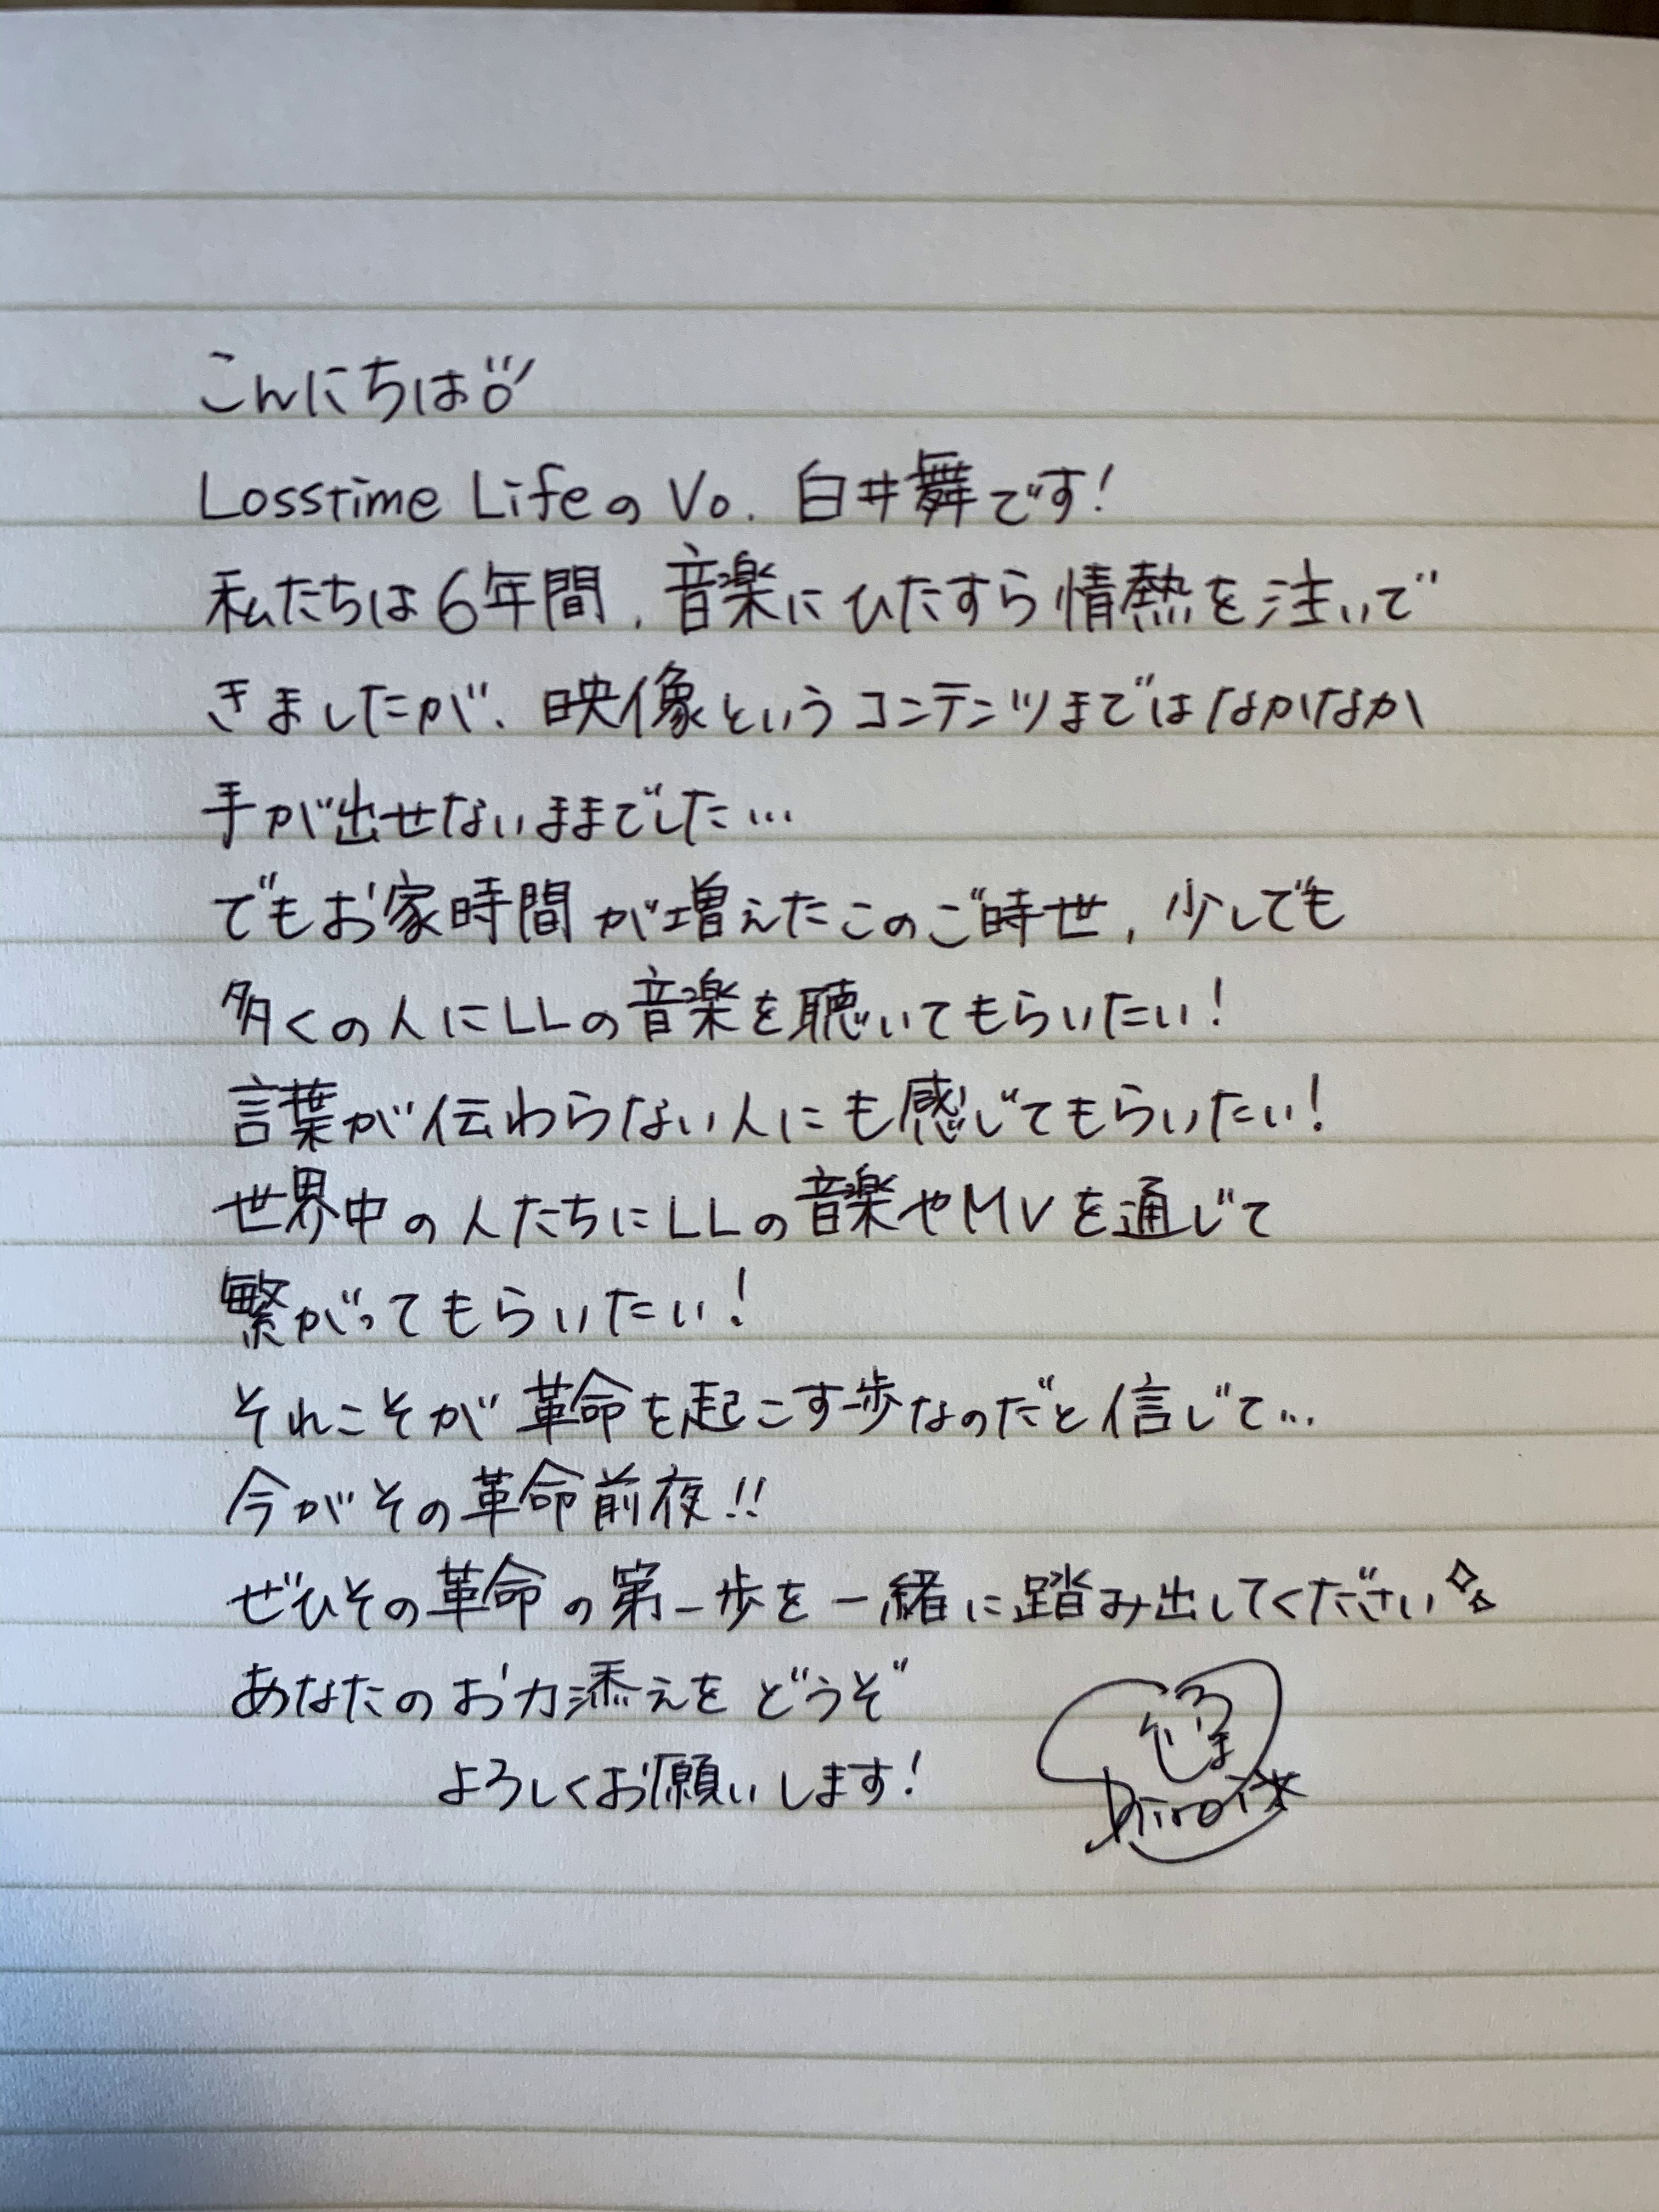 こんにちは
Losstime LifeのVo. 白井舞です!
私たちは6年間、音楽にひたすら情熱を注いで
きましたが、映像というコンテンツまではなかなか
手が出せないままでした…
でもお家時間が増えたこのご時世、少しでも
多くの人にLLの音楽を聴いてもらいたい!
言葉が伝わらない人にも感じてもらいたい!
世界中の人たちにLLの音楽やMVを通じて
繋がってもらいたい!
それこそが革命を起こす一歩なのだと信じて…
今がその革命前夜!!
ぜひその革命の第一歩を一緒に踏み出してください
あなたのお力添えをどうぞ
よろしくお願いします!